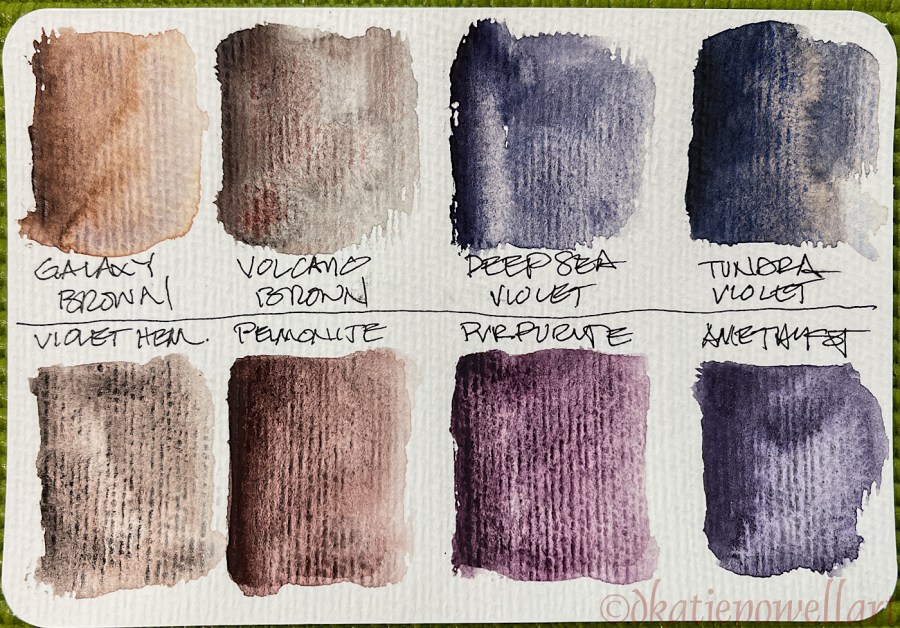 GALAXY
BROWN
VOLCANO
BROWN
DEEP SEA
VIOLET
TUNDRA
VIOLET
VIOLET HEM.
PIEMONITE
PURPURITE
AMETHYST
©dkatienowellart